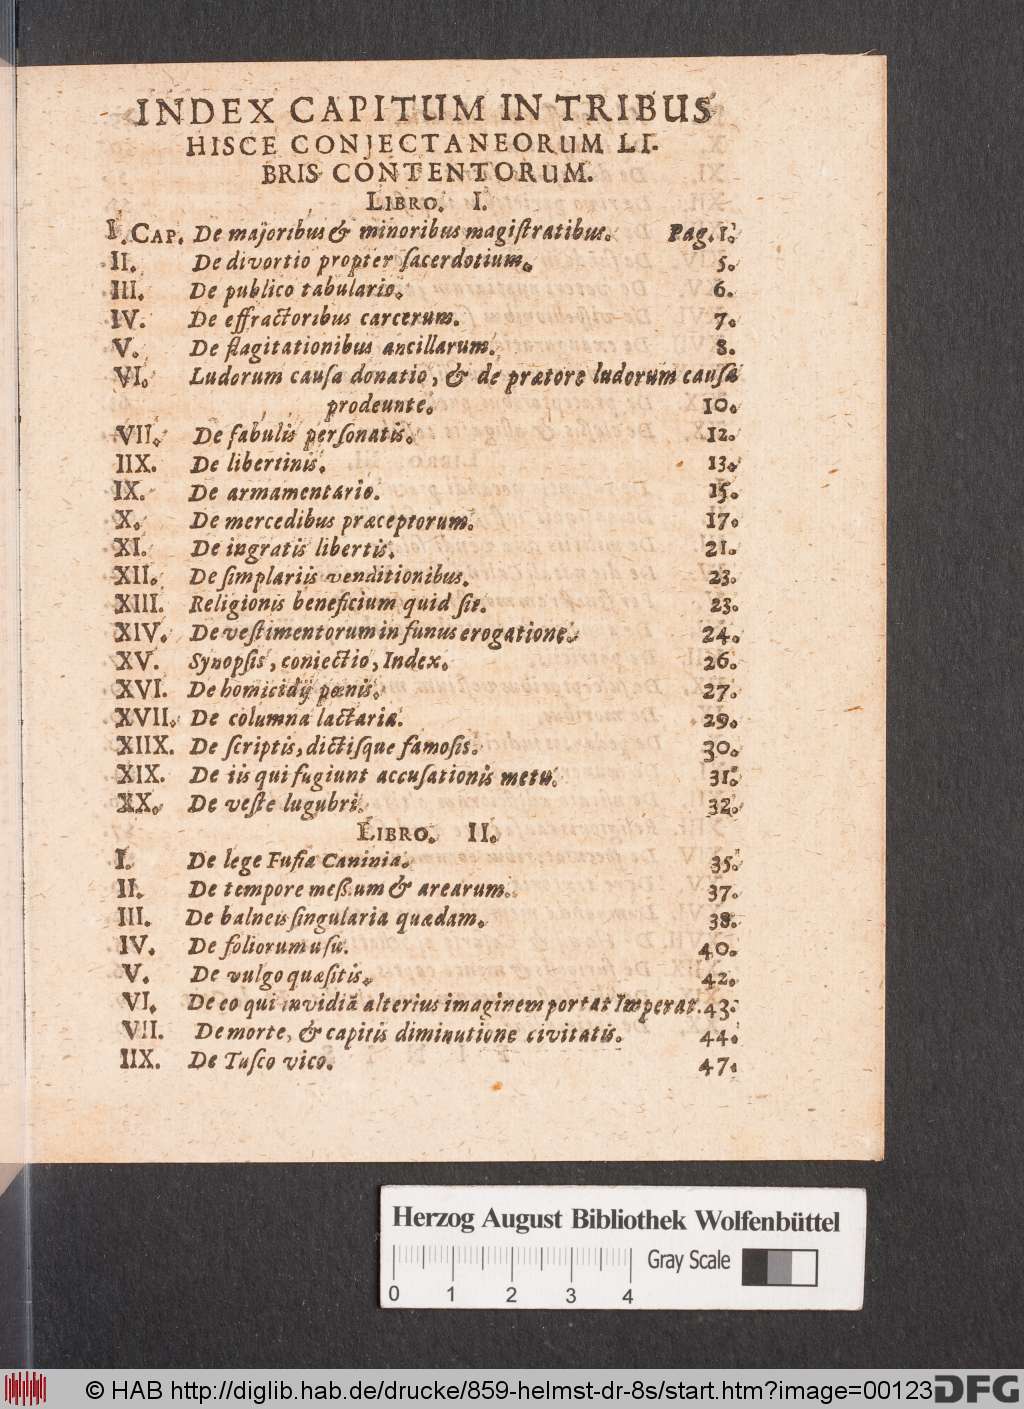 INDEX CAPITUM IN TRIBUS
HISCE CONJECTANEORUM LI-
BRIS CONTENTORUM.
LIBRO. I.
I. CAP. De majoribus & minoribus magiſtratibus. Pag. 1.
II. De divortio propter ſacerdotium. 5.
III. De publico tabulario. 6.
IV. De effractoribus carcerum. 7.
V. De flagitationibus ancillarum. 8.
VI. Ludorum cauſa donatio, & de prætore ludorum cauſa
prodeunte. 10.
VII. De fabulis perſonatis. 12.
IIX. De libertinis. 13.
IX. De armamentario. 15.
X. De mercedibus præceptorum. 17.
XI. De ingratis libertis. 21.
XII. De ſimplariis venditionibus. 23.
XIII. Religionis beneficium quid ſit. 23.
XIV. De veſtimentorum in funus erogatione. 24.
XV. Synopſis, coniectio, Index. 26.
XVI. De homicidij pœnis. 27.
XVII. De columna lactaria. 29.
XIIX. De ſcriptis, dictiſque famoſis. 30.
XIX. De iis qui fugiunt accuſationis metu. 31.
XX. De veſte lugubri. 32.
LIBRO. II.
I. De lege Fuſia Caninia. 35.
II. De tempore meßium & arearum. 37.
III. De balneis ſingularia quædam. 38.
IV. De foliorum uſu. 40.
V. De vulgo quæſitis. 42.
VI. De eo qui invidiã alterius imaginem portat Imperat. 43.
VII. De morte, & capitis diminutione civitatis. 44.
IIX. De Tuſco vico. 47.
Herzog August Bibliothek Wolfenbüttel
Gray Scale
0 1 2 3 4
© HAB http://diglib.hab.de/drucke/859-helmst-dr-8s/start.htm?image=00123
DFG